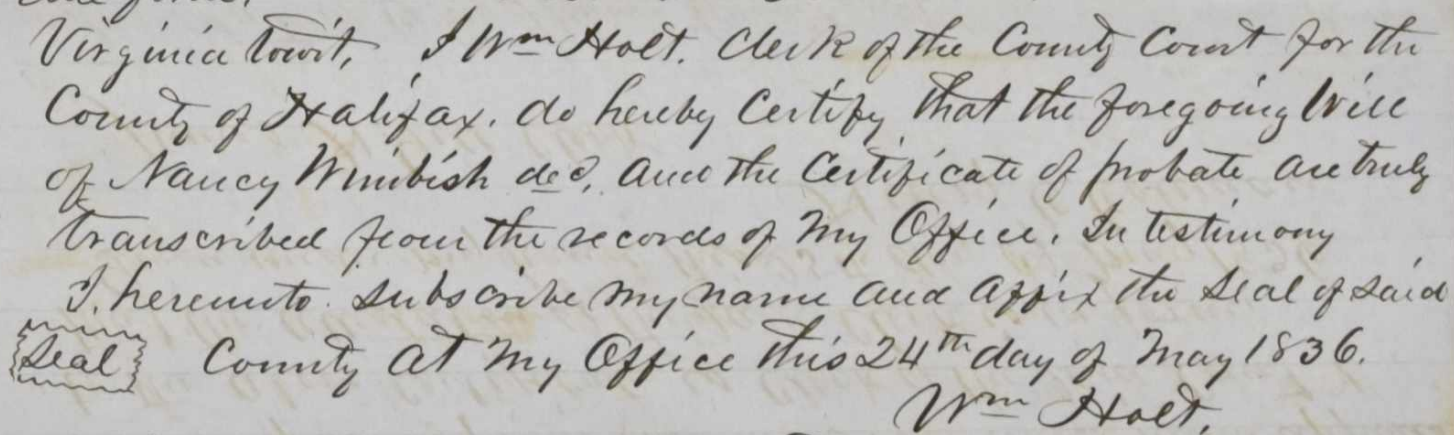 Virginia towit, I Wm Holt. Clerk of the County Court for the
County of Halifax. do hereby Certify that the foregoing Will
of Nancy Wimbish decd, and the Certificate of probate are truly
transcribed from the records of My Office. In testimony
I. hereunto. subscribe my name and affix the Seal of said
Seal County at My Office this 24th day of May 1836.
Wm Holt.